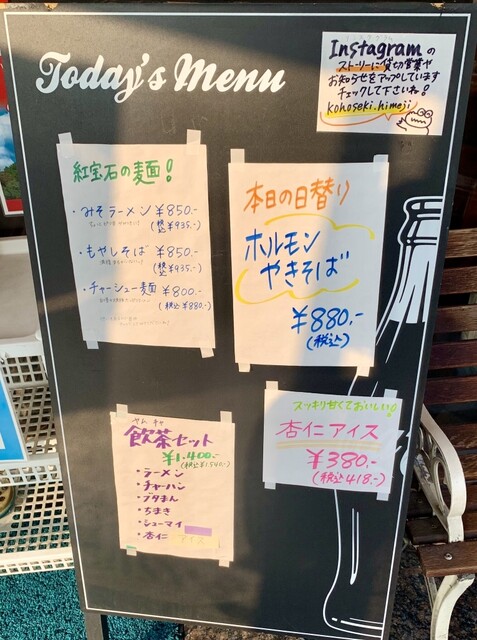 Today's Menu
Instagramの
ストーリーに貸切営業や
お知らせをアップしています
チェックして下さいね!
kohoseki.himeji
紅宝石の麺!
・みそラーメン ¥850.-
(税込¥935.-)
・もやしそば ¥850.-
(税込¥935.-)
・チャーシュー麺 ¥800.-
(税込¥880.-)
本日の日替り
ホルモン
やきそば
¥880.-
(税込)
ヤムチャ
飲茶セット
¥1,400.-
(税込¥1,540.-)
・ラーメン
・チャーハン
・ブタまん
・ちまき
・シューマイ
・杏仁アイス
スッキリ甘くておいしい♪
杏仁アイス
¥380.-
(税込418.-)